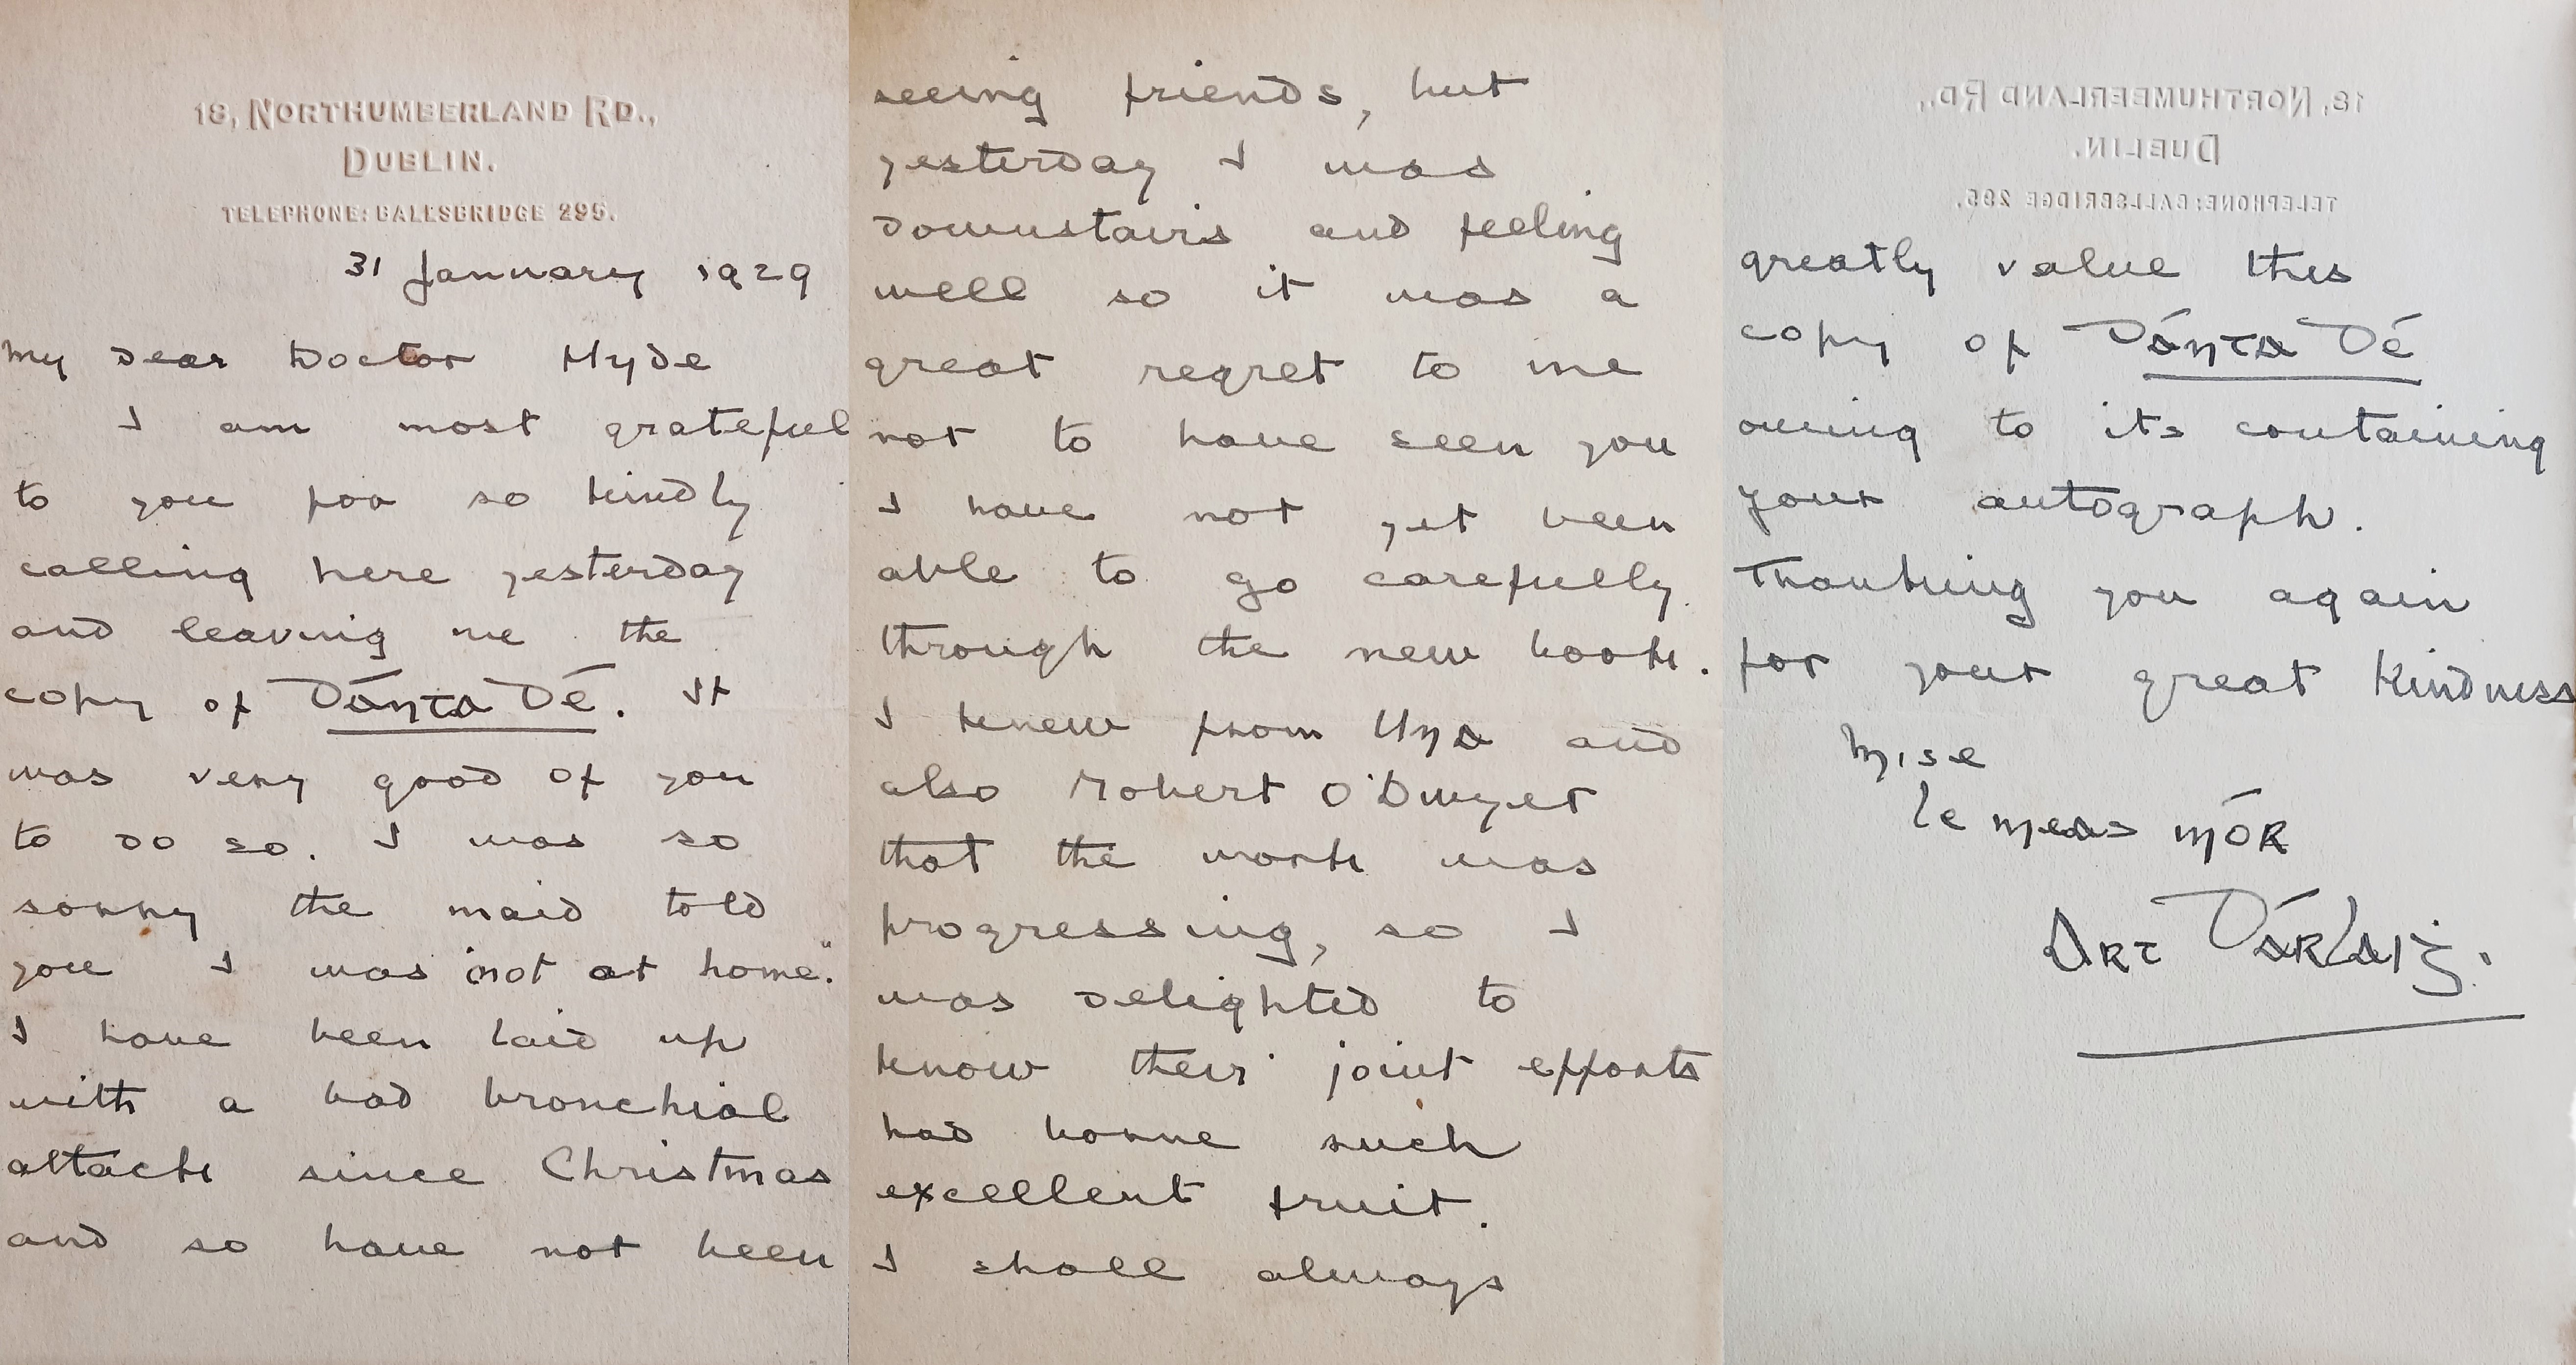 18, NORTHUMBERLAND RD.,
DUBLIN.
TELEPHONE: BALLSBRIDGE 295.
31 January 1929
My dear Doctor Hyde
I am most grateful
to you for so kindly
calling here yesterday
and leaving me the
copy of Dánta Dé. It
was very good of you
to do so. I was so
sorry the maid told
you I was "not at home."
I have been laid up
with a bad bronchial
attack since Christmas
and so have not been
seeing friends, but
yesterday I was
downstairs and feeling
well so it was a
great regret to me
not to have seen you
I have not yet been
able to go carefully
through the new book.
I knew from Úna and
also Robert O'Dwyer
that the work was
progressing, so I
was delighted to
know their joint efforts
had borne such
excellent fruit.
I shall always
18, NORTHUMBERLAND RD.,
DUBLIN.
TELEPHONE: BALLSBRIDGE 295.
greatly value this
copy of Dánta Dé
owing to its containing
your autograph.
Thanking you again
for your great kindness
Mise
le meas mór
Art Dárlaiġ.